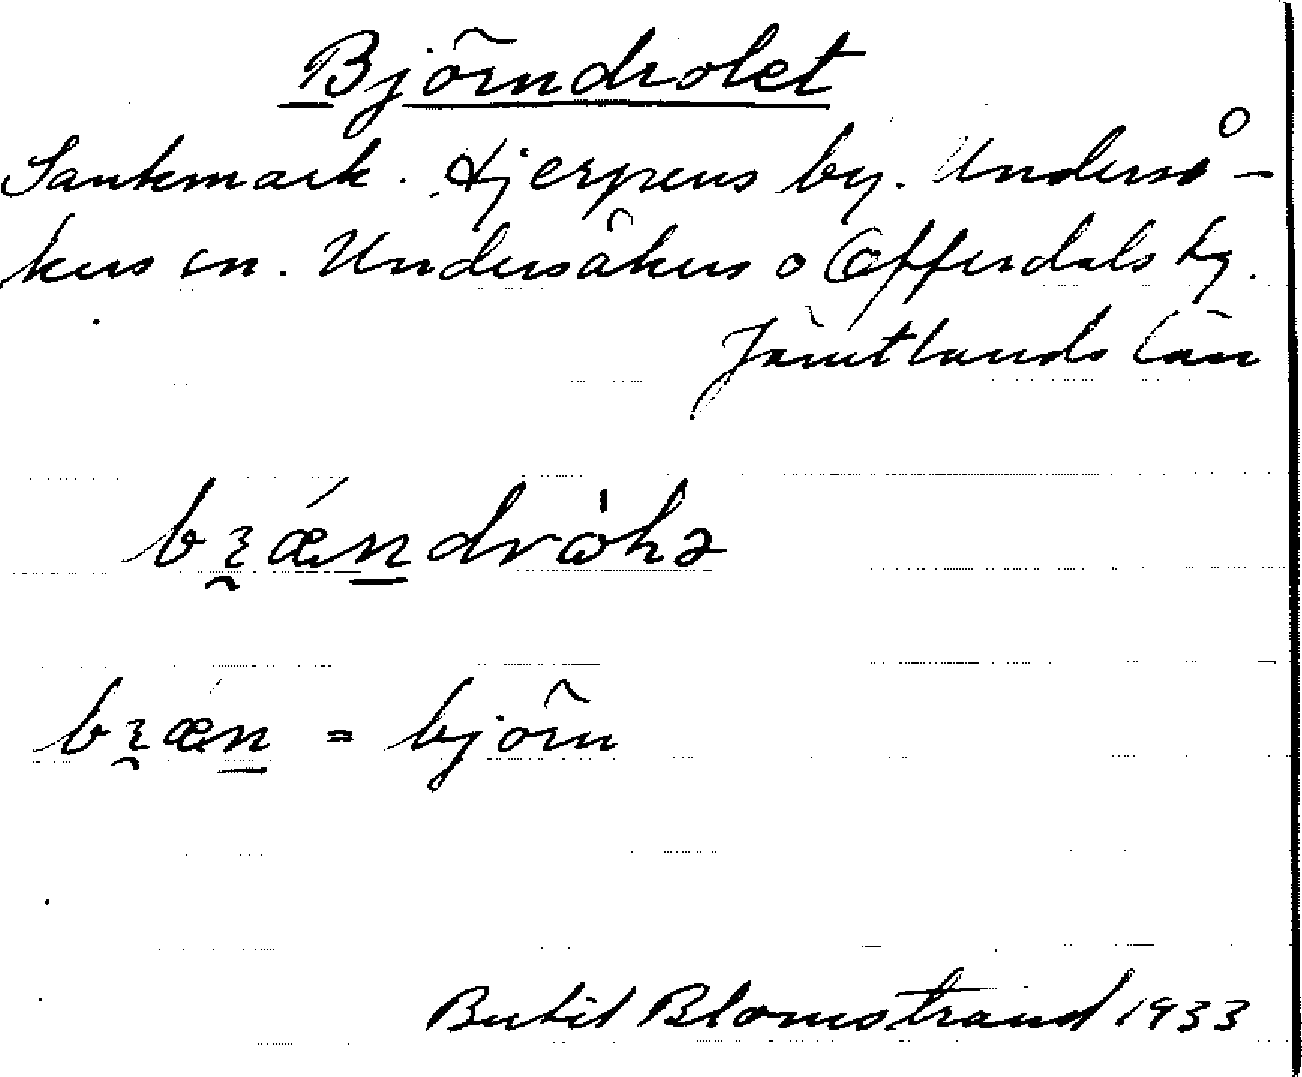 Björndrolet
Sankmark. Hjerpens by. Underså-
kers sn. Undersåkers o Offerdals tg.
Jämtlands län
bɿǽn̲dròhə
bɿǽn̲ = björn
Bertil Blomstrand 1933